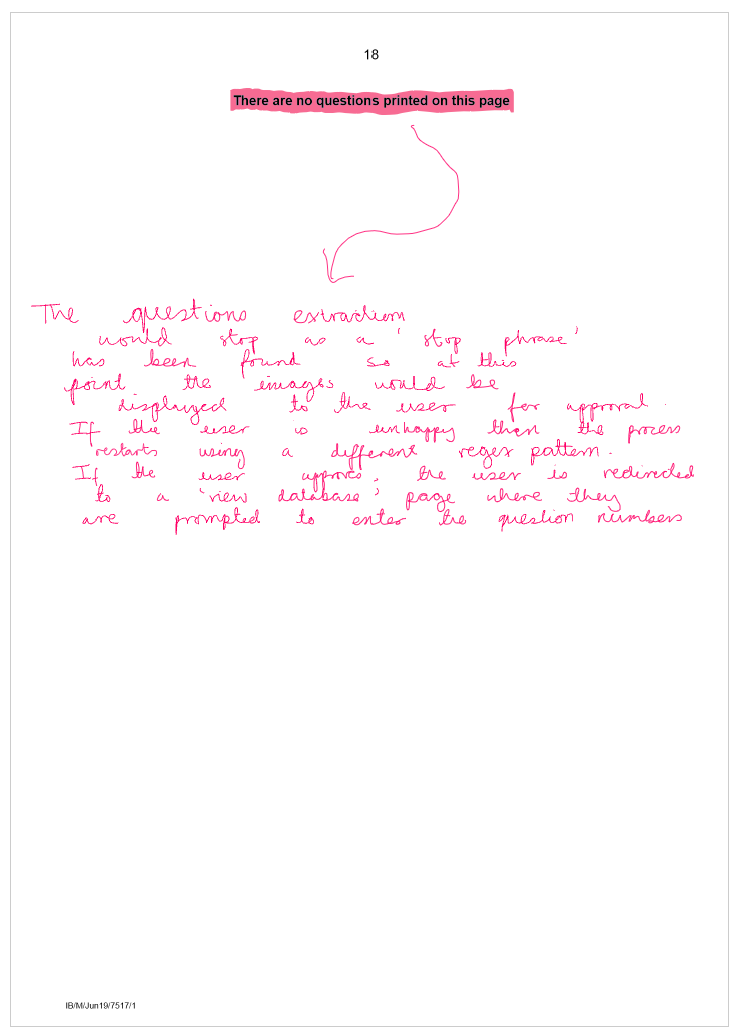 18
There are no questions printed on this page
The questions extraction
would stop as a 'stop phrase'
has been found so at this
point the images would be
displayed to the user for approval.
If the user is unhappy then the process
restarts using a different regex pattern.
If the user approves, the user is redirected
to a 'view database' page where they
are prompted to enter the question numbers
IB/M/Jun19/7517/1